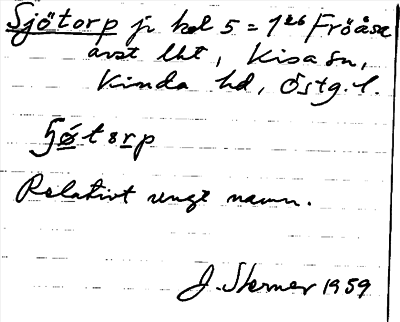 Sjötorp jr kal 5 = 1 es Fröåsa
avst lht, Kisa sn,
Kinda hd, Östg. l.
ʃǿtɵrp
Relativt ungt namn.
J. Sterner 1959